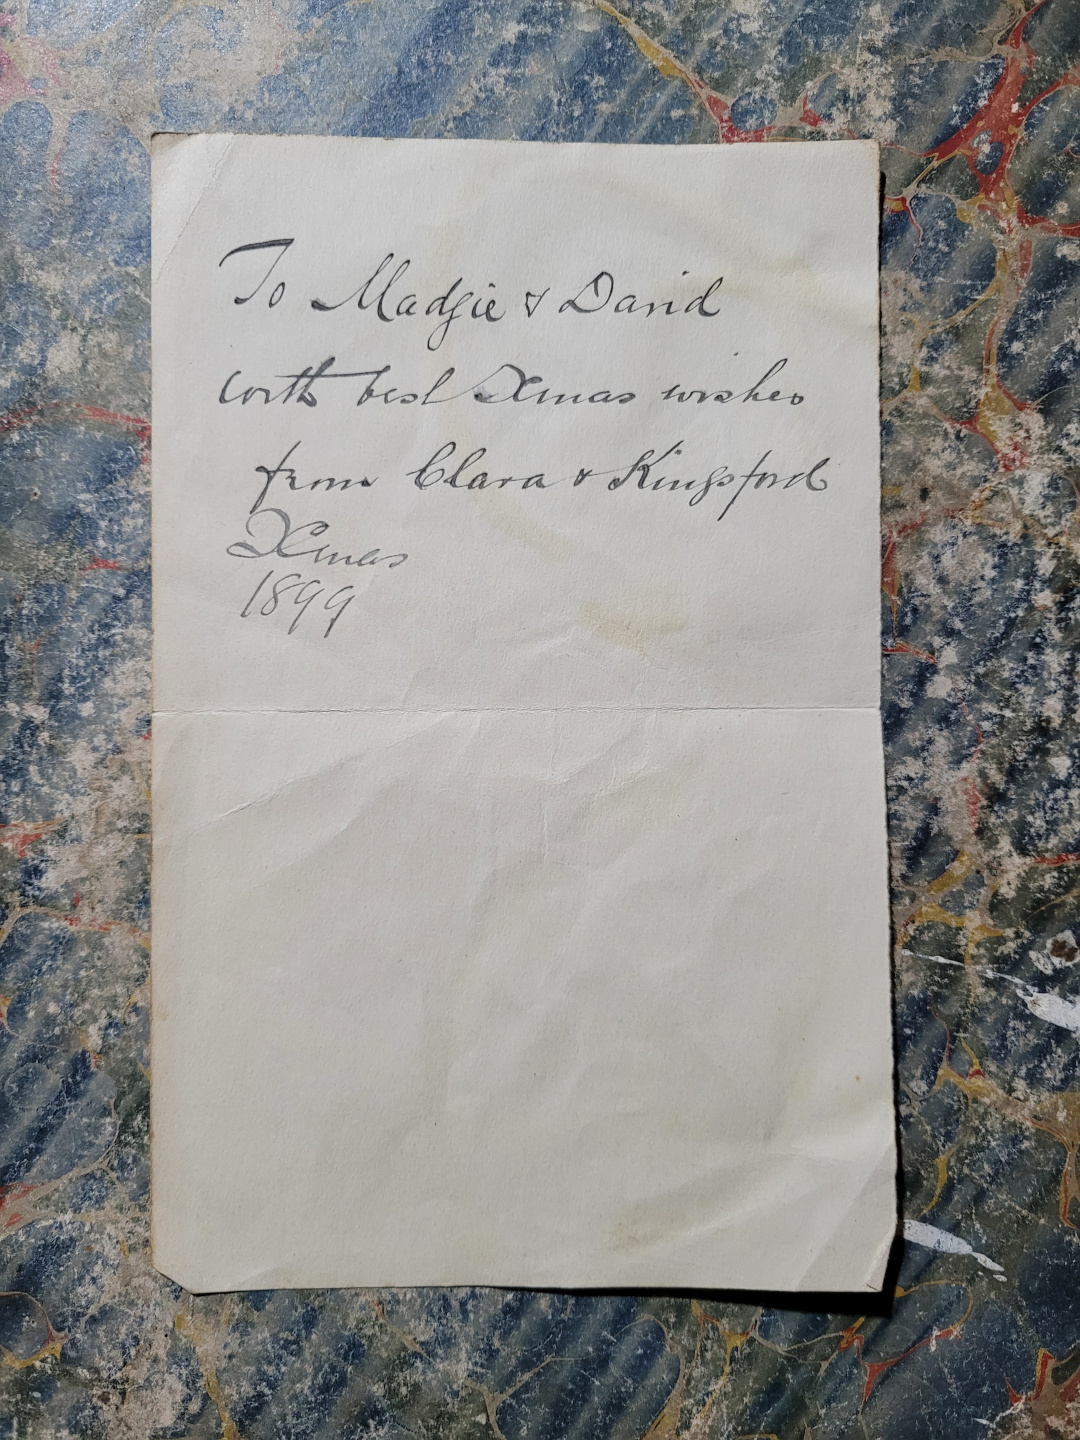 To Madgie & David
with best Xmas wishes
from Clara & Kingsford
Xmas
1899